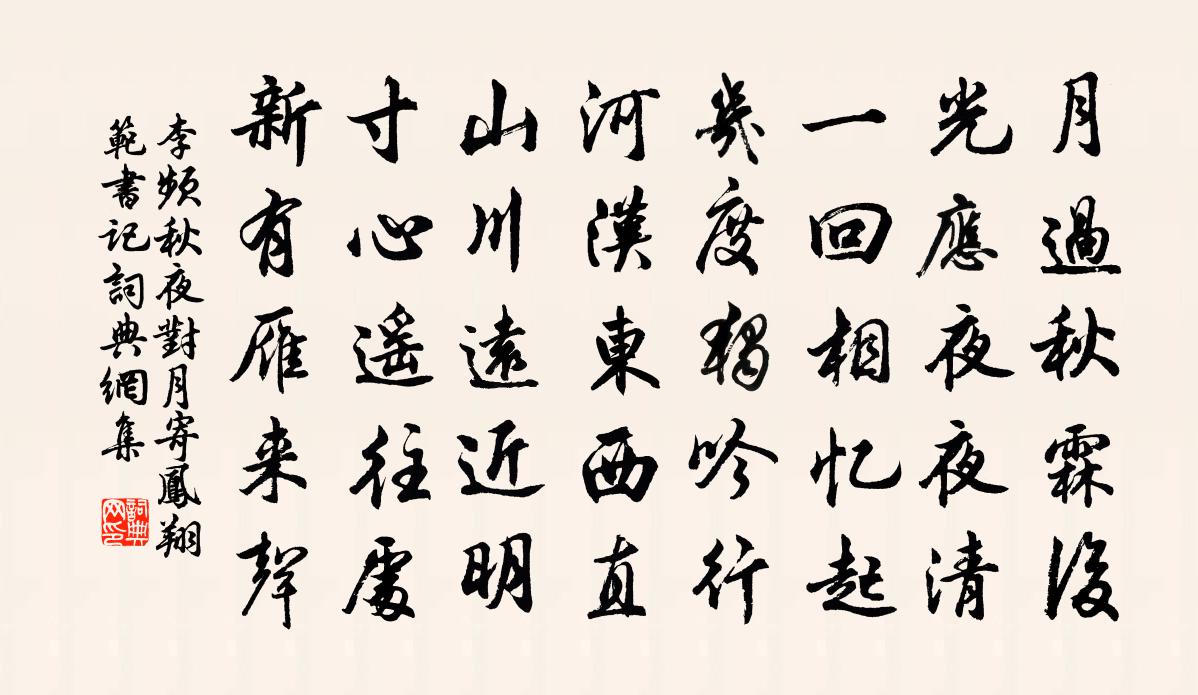 月過秋霖後
光應夜夜清
一回相忆起
幾度獨吟行
河漢東西直
山川遠近明
寸心遥往處
新有雁来聲
李頻秋夜對月寄鳳翔
範書记詞典網集
詞典网印